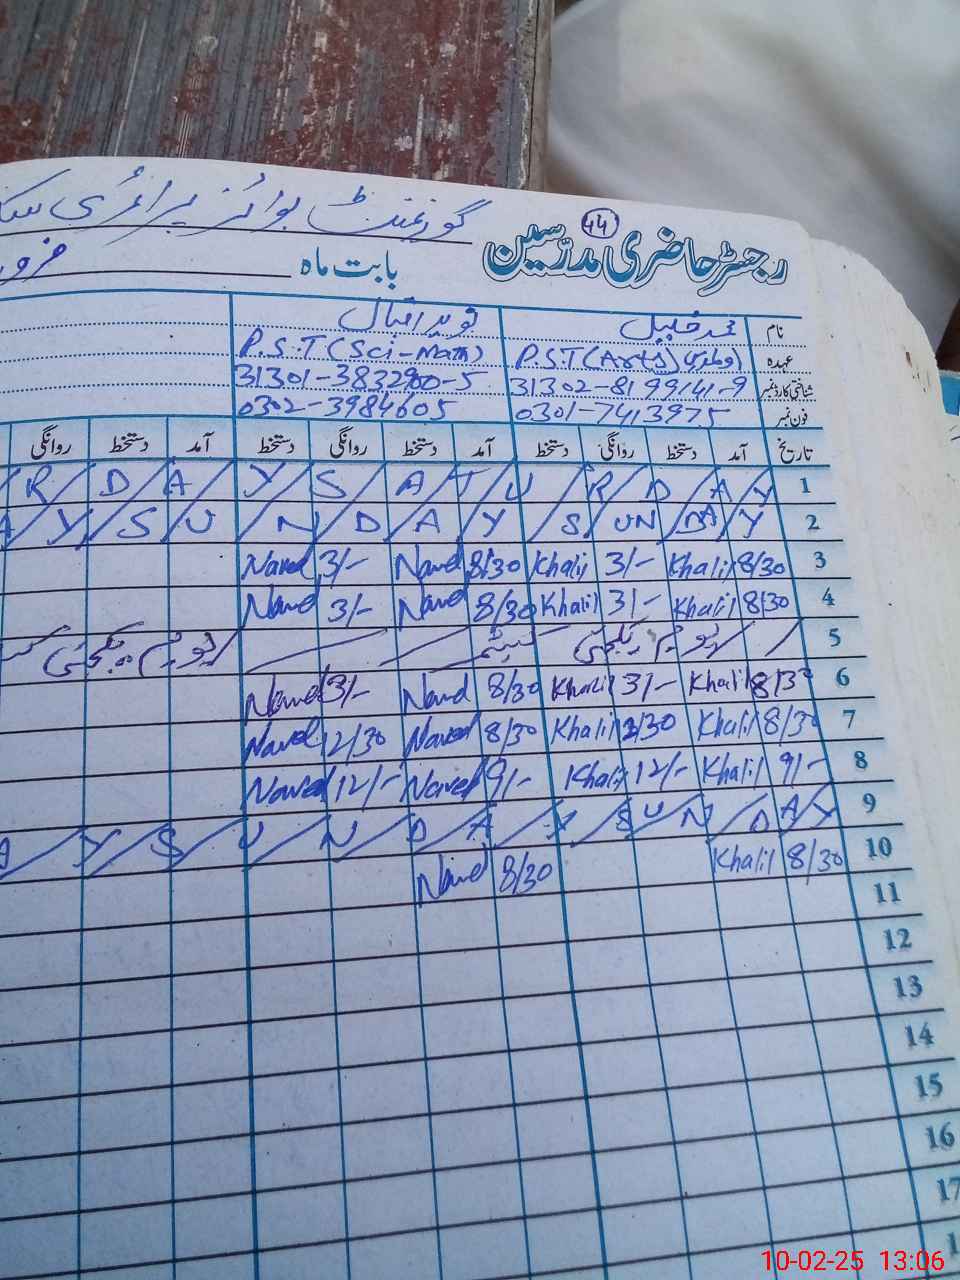 گورنمنٹ بوائز پرائمری
44
رجسٹر حاضری مدرسین
بابت ماہ
نام محمد خلیل نوید اقبال
عہدہ P.S.T (Arts) P.S.T (Sci-Math)
شناختی کارڈ نمبر 31302-8199141-9 31301-3832900-5
فون نمبر 0301-7413975 0302-3984605
تاریخ آمد دستخط روانگی دستخط آمد دستخط روانگی دستخط آمد دستخط روانگی
1 R / D / A / Y / S / A / T / U / R / D / A / Y
2 A / Y / S / U / N / D / A / Y / S / UN / DA / Y
3 8/30 Khalil 3/- Khalil 8/30 Naved 3/- Naved
4 8/30 Khalil 3/- Khalil 8/30 Naved 3/- Naved
5 یوم یکجہتی کشمیر یوم یکجہتی
6 8/30 Khalil 3/- Khalil 8/30 Naved 3/- Naved
7 8/30 Khalil 12/30 Khalil 8/30 Naved 12/30 Naved
8 9/- Khalil 12/- Khalil 9/- Naved 12/- Naved
9 A / Y / S / U / N / D / A / Y / S / U / N / D / A / Y
10 8/30 Khalil 8/30 Naved
11
12
13
14
15
16
17
10-02-25 13:06